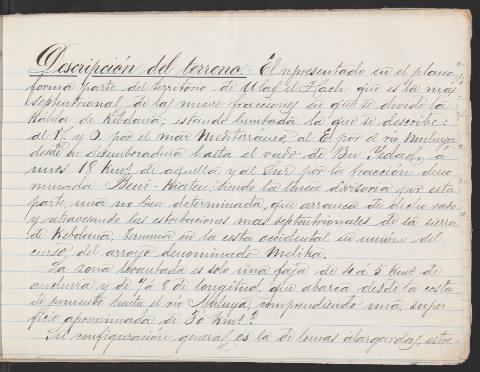 Descripción del terreno.- El representado en el plano
forma parte del territorio de Ulad el Hach que es la mas
septentrional de las nueve fracciones en que se divide la
Kabila de Kebdana; estando limitada la que se describe:
al N. y O. por el mar Mediterráneo, al E. por el río Muluya
desde su desembocadura hasta el vado de Bu a
unos 18 Kmˢ. de aquella y al Sur por la fracción deno-
minada Beni- siendo la linea divisoria por esta
parte, una no bien determinada, que arranca de dicho vado
y atravesando las estribaciones mas septentrionales de la sierra
de Kebdana, termina en la costa occidental en unión del
curso del arroyo denominado
La zona levantada es solo una faja de 4 á 5 Kmˢ. de
anchura y de 7 á 8 de longitud, que abarca desde la costa
de poniente hasta el río Muluya, comprendiendo una super
ficie aproximada de 30 Kmˢ.²
Su configuración general es la de lomas alargadas, estre-